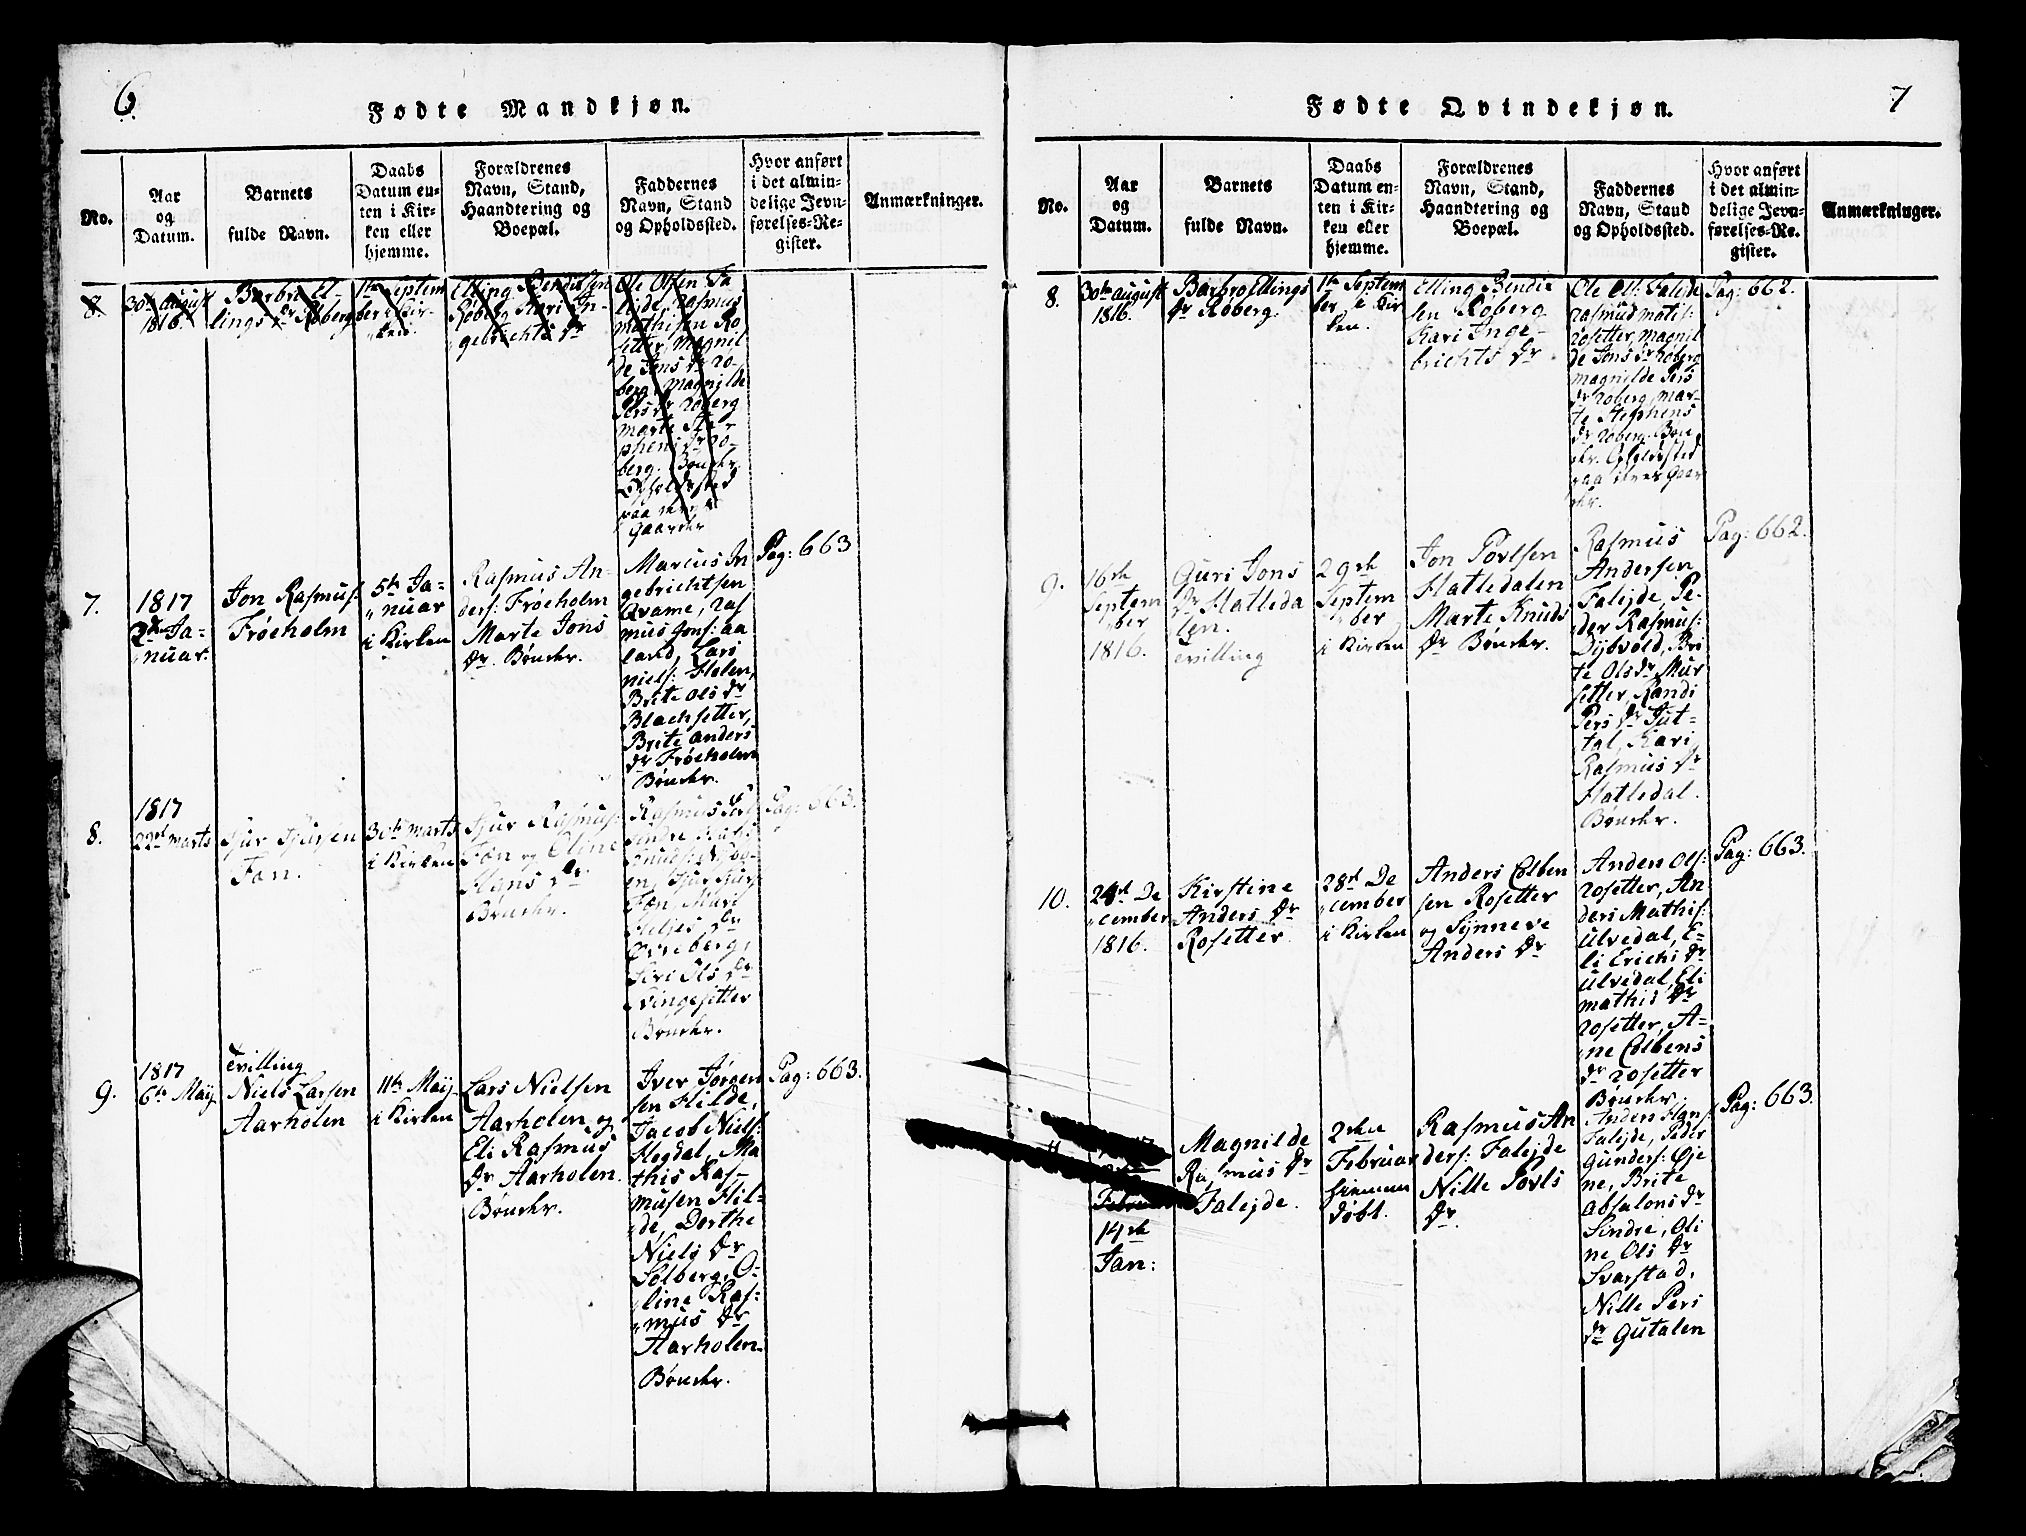 6.
Fødte Mandkjøn.
No.
Aar
og
Datum.
Barnets
fulde Navn.
Daabs
Datum en-
ten i Kir-
ken eller
hjemme.
Forældrenes
Navn, Stand,
Haandtering og
Boepæl.
Faddernes
Navn, Stand
og Opholdssted.
Hvor anført
i det almin-
delige Jevn-
førelses-Re-
gister.
Anmærkninger.
8.
30te August
1816.
Barbro El-
lings Dr Røberg
1te Septem
ber i Kir-
ken.
Elling Bendiksen
Røberg Kari In-
gebrichts Dr
Ole Olsen Fa-
lejde, Rasmus
Mathisen Ro-
setter, Magnil
de Jons Dr Rø-
berg, Magnilde
Pers Dr Røberg
Marte Ste-
phens Dr Rø-
berg. Bønder
Opholdssted
paa
Gaarder
7.
1817
2den Ja-
nuar.
Jon Rasmus:
Frøeholm
5te Ja-
nuar
i Kirken
Rasmus An-
ders: Frøeholm
Marte Jons
Dr. Bønder.
Marcus In
gebrichtsen
Qvame, Ras
mus Jons: Aa
land, Lars
Niels: Holen,
Brite Ols Dr
Blachsetter,
Brite Anders
Dr Frøeholm
Bønder.
Pag: 663
8.
1817
22de Marts
Sjur Sjursen
Fon.
30te Marts
i Kirken
Sjur Rasmus:
Fon og Oline
Hans Dr.
Bønder.
Rasmus
Sindre
Knuds:
en, Sjur Sjurs:
Fon, Mari
Heljes Dr
Øvreberg,
Siri Ols Dr
Svingesetter
Bønder.
Pag: 663.
9.
1817
6te Maÿ
Tvilling
Niels Larsen
Aarholen
11te Maÿ
i Kirken
Lars Nielsen
Aarholen og
Eli Rasmus
Dr Aarholen.
Bønder.
Iver Jørgen
sen Hilde,
Jacob Niels:
Hegdal, Ma
this Ras-
musen Hil-
de, Dorthe
Niels Dr
Solberg, O-
line Ras-
mus Dr
Aarholen.
Bønder.
Pag: 663.
7
Fødte Qvindekjøn.
No.
Aar
og
Datum.
Barnets
fulde Navn.
Daabs
Datum en-
ten i Kir-
ken eller
hjemme.
Forældrenes
Navn, Stand,
Haandtering og
Boepæl.
Faddernes
Navn, Stand
og Opholdssted.
Hvor anført
i det almin-
delige Jevn-
førelses-Re-
gister.
Anmærkninger.
8.
30te August
1816.
Barbro Ellings
Dr Røberg.
1te Septem
ber i Kir
ken.
Elling Bendik
sen Røberg
Kari Inge-
brichts Dr
Ole Ols: Falejde
Rasmus Matis:
Rosetter, Magnil
de Jons Dr Røberg
Magnilde Pers
Dr Røberg, Mar-
te Stephens
Dr Røberg. Bøn
der. Opholdssted
paa Gaar
der.
Pag: 662.
9.
16de
Septem
ber
1816.
Guri Jons
Dr Hatleda
len.
Tvilling
29de
Septem
ber
i Kirken
Jon Povlsen
Hatledalen
Marte Knuds
Dr Bønder.
Rasmus
Andersen
Falejde, Pe-
der Rasmus:
Dybvold, Bri
te Ols Dr Mur
setter, Randi
Pers Dr Gut-
tal, Kari
Rasmus Dr
Hatledal.
Bønder.
Pag: 662.
10.
24de De
cember
1816.
Kirstine
Anders Dr
Rosetter
28de De
cember
i Kirken
Anders Colben
sen Rosetter
og Synneve
Anders Dr
Anders Ols:
Rosetter, An
ders Mathis:
Ulvedal, E-
li Erichs Dr
Ulvedal, Eli
Mathis Dr
Rosetter, A-
ne Colbens
Dr Rosetter
Bønder.
Pag: 663.
11
14de
Jan:
Magnilde
Rasmus Dr
Falejde.
2den
Februar
hiemme
døbt.
Rasmus An
ders: Falejde
Nille Povls
Dr.
Anders Hans
Falejde, Peder
Gunders: Øje
ne, Brite
Absalons Dr
Sindre, Oli
ne Ols Dr
Svarstad,
Nille Pers
Dr Gutalen
Pag: 663.